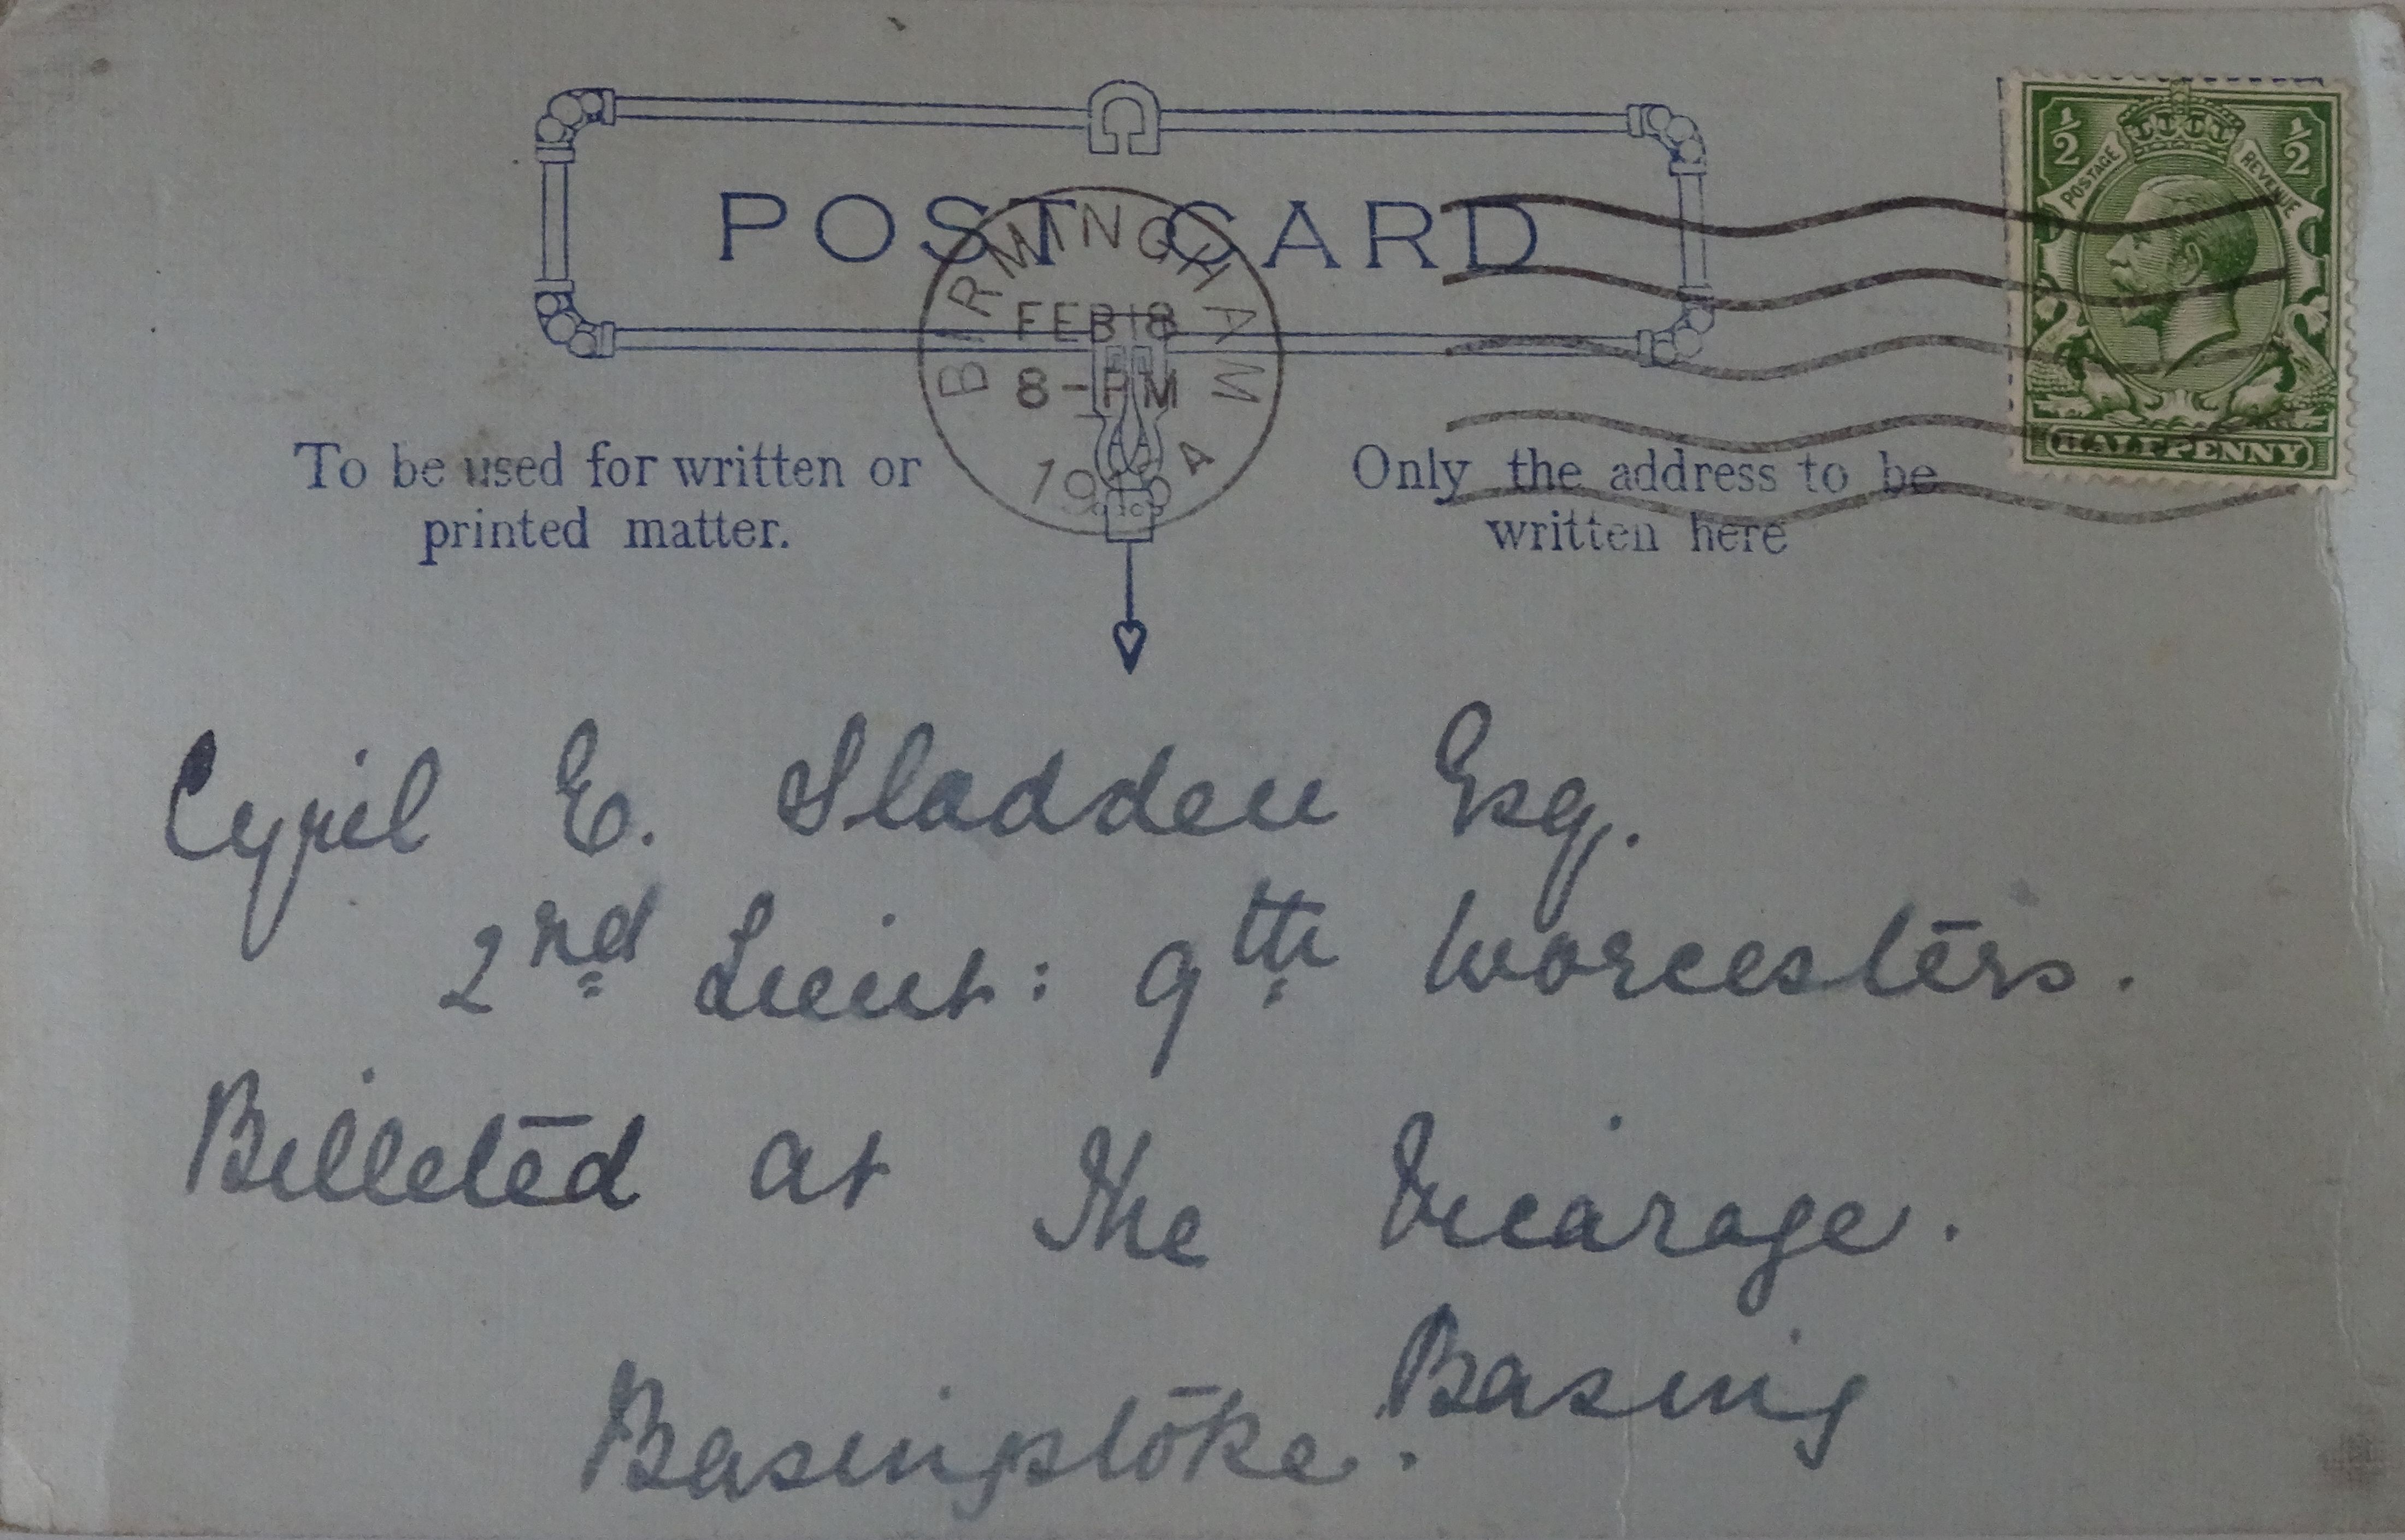 POST CARD
BIRMINGHAM
FEB 18
8-PM
To be used for written or
printed matter.
Only the address to be
written here
½ ½
POSTAGE REVENUE
HALFPENNY
Cyril E. Sladden Esq.
2nd Lieut: 9th Worcesters.
Billeted at The Vicarage.
Basing
Basingstoke.